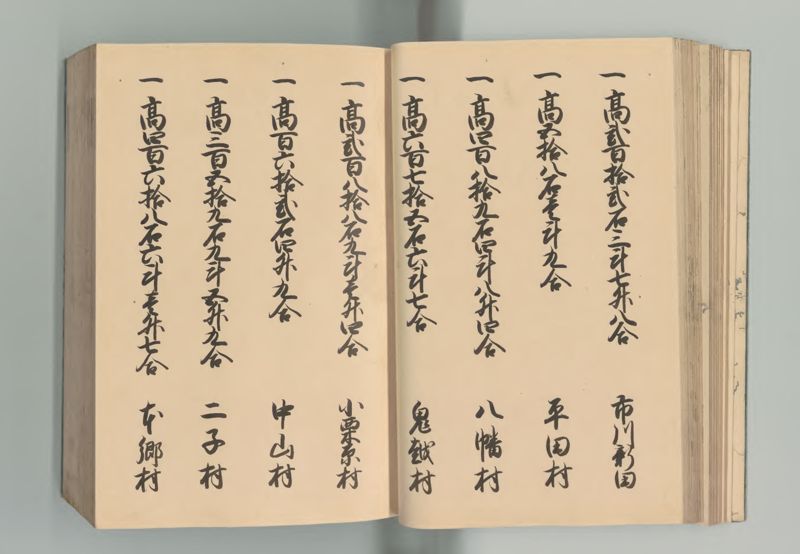 一 高弐百拾弐石三斗七升八合 市川新田
一 高五拾八石壱斗九合 平田村
一 高四百八拾九石四斗八升四合 八幡村
一 高六百七拾五石六斗七合 鬼越村
一 高弐百八拾八石九斗壱升四合 小栗原村
一 高百六拾弐石四升九合 中山村
一 高三百五拾九石九斗五升九合 二子村
一 高四百六拾八石六斗壱升七合 本郷村